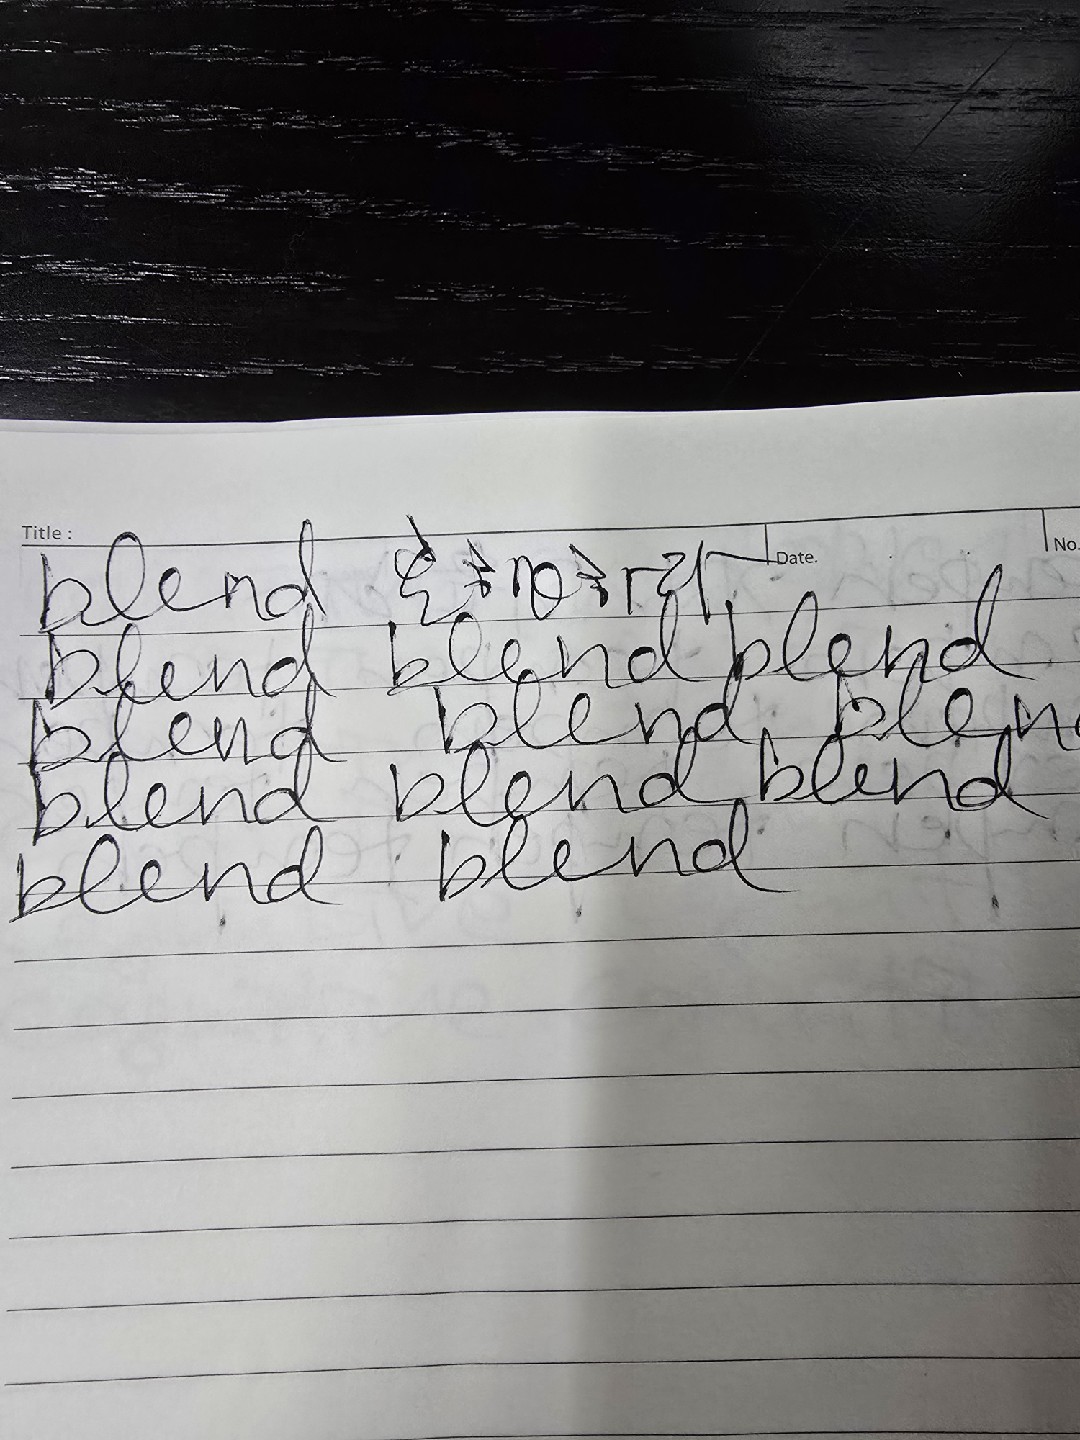 Title : Date. No.
blend
blend blend blend
blend blend blen
blend blend blend
blend blend